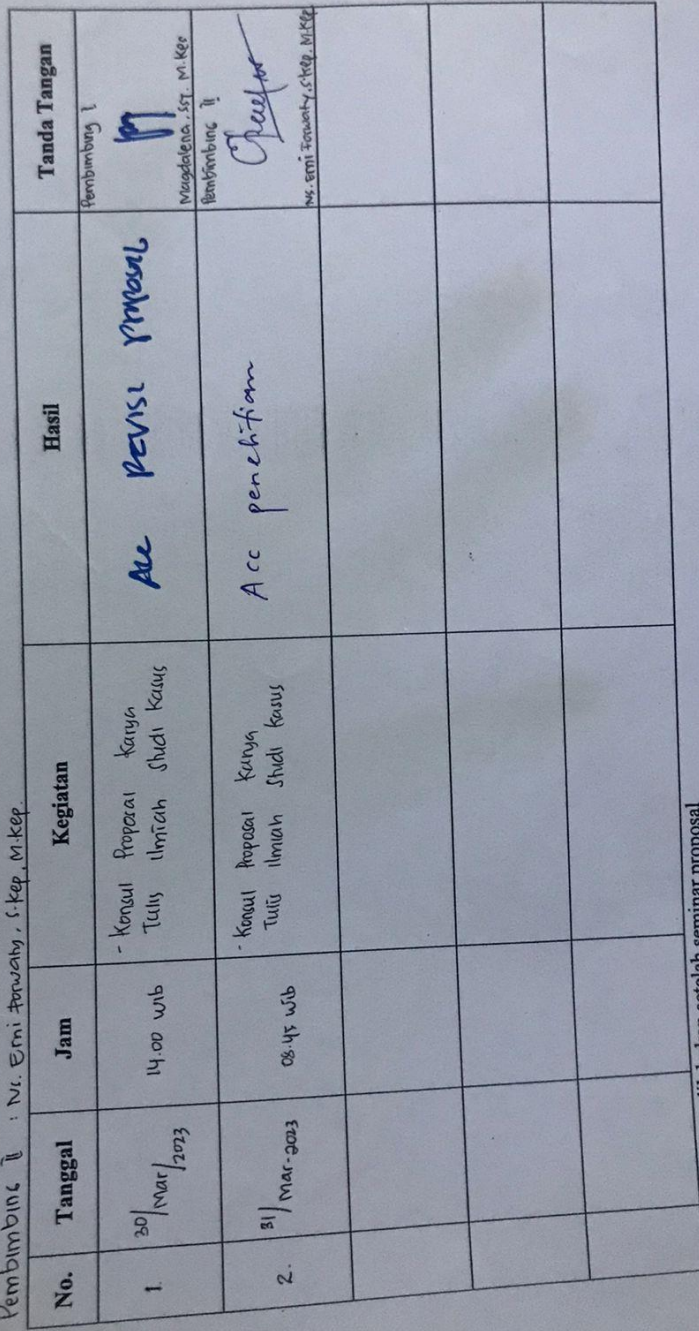 Pembimbing II : Ns. Erni Forwaty, S.Kep, M.Kep.
No. Tanggal Jam Kegiatan Hasil Tanda Tangan
1. 30/Mar/2023 14.00 wib - Konsul Proposal Karya Tulis Ilmiah Studi Kasus Acc Revisi proposal Pembimbing I
Magdalena, SST, M.Kep
2. 31/Mar-2023 08.45 wib - Konsul Proposal Karya Tulis Ilmiah Studi Kasus Acc penelitian Pembimbing II
Ns. Erni Forwaty, S.Kep, M.Kep
setelah seminar proposal